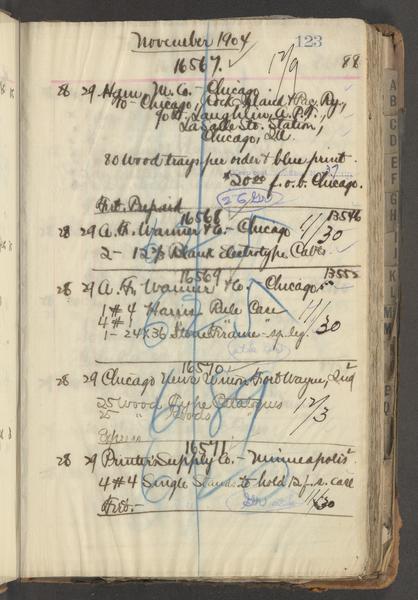 November 1904
123
16567. 12/9 88
28 29 Ham. M. Co. - Chicago
To - Chicago, Rock Island & Pac. Ry.,
90 W. Laughlin, G.P.A.,
LaSalle St. Station,
Chicago, Ill.
80 Wood trays per order & blue print
$20.00 f.o.b. Chicago.
Frt. Prepaid
16568 13546
28 29 A. F. Wanner & Co. - Chicago 11/30
2 - 12/3 Blank Electrotype Cabs
16569 13552
28 29 A. F. Wanner & Co. Chicago
1 # 4 Harris Rule Case 11/30
4 # 1
1 - 24x36 Stone Frame - sp. leg.
16570
28 29 Chicago News Union Fort Wayne, Ind
25 Wood Type Catalogues 12/3
25 " Goods "
Express
16571
28 29 Printers Supply Co. - Minneapolis
4 # 4 Single Stands to hold 12 f. s. case
Frt. - 11/30
A
B
C
D
E
F
G
H
I
J
K
L
M